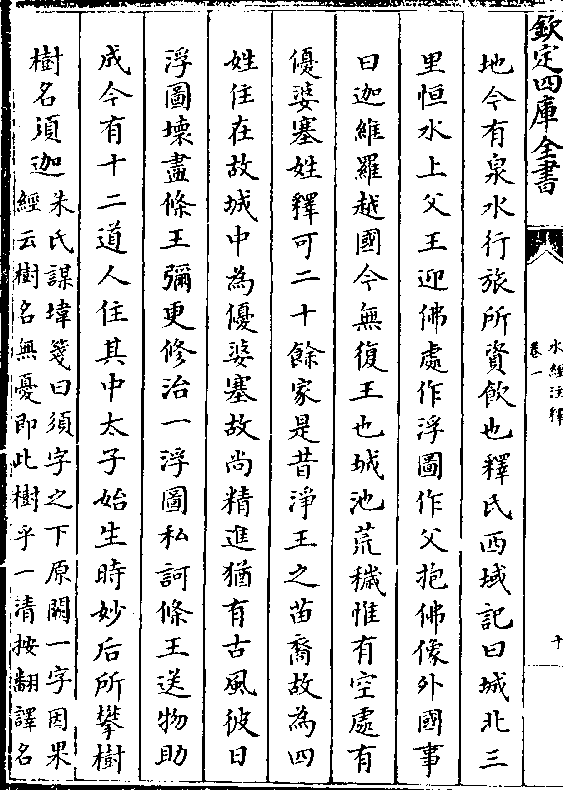 欽定四庫全書
水經注釋
卷一
十
地今有泉水行旅所資飲也釋氏西域記曰城北三
里恒水上父王迎佛處作浮圖作父抱佛像外國事
曰迦維羅越國今無復王也城池荒穢惟有空處有
優婆塞姓釋可二十餘家是昔淨王之苗裔故為四
姓住在故城中為優婆塞故尚精進猶有古風彼日
浮圖壞盡條王彌更修治一浮圖私訶條王送物助
成今有十二道人住其中太子始生時妙后所攀樹
樹名須迦
朱氏謀㙔箋曰須字之下原闕一字因果
經云樹名無憂即此樹乎一清按翻譯名